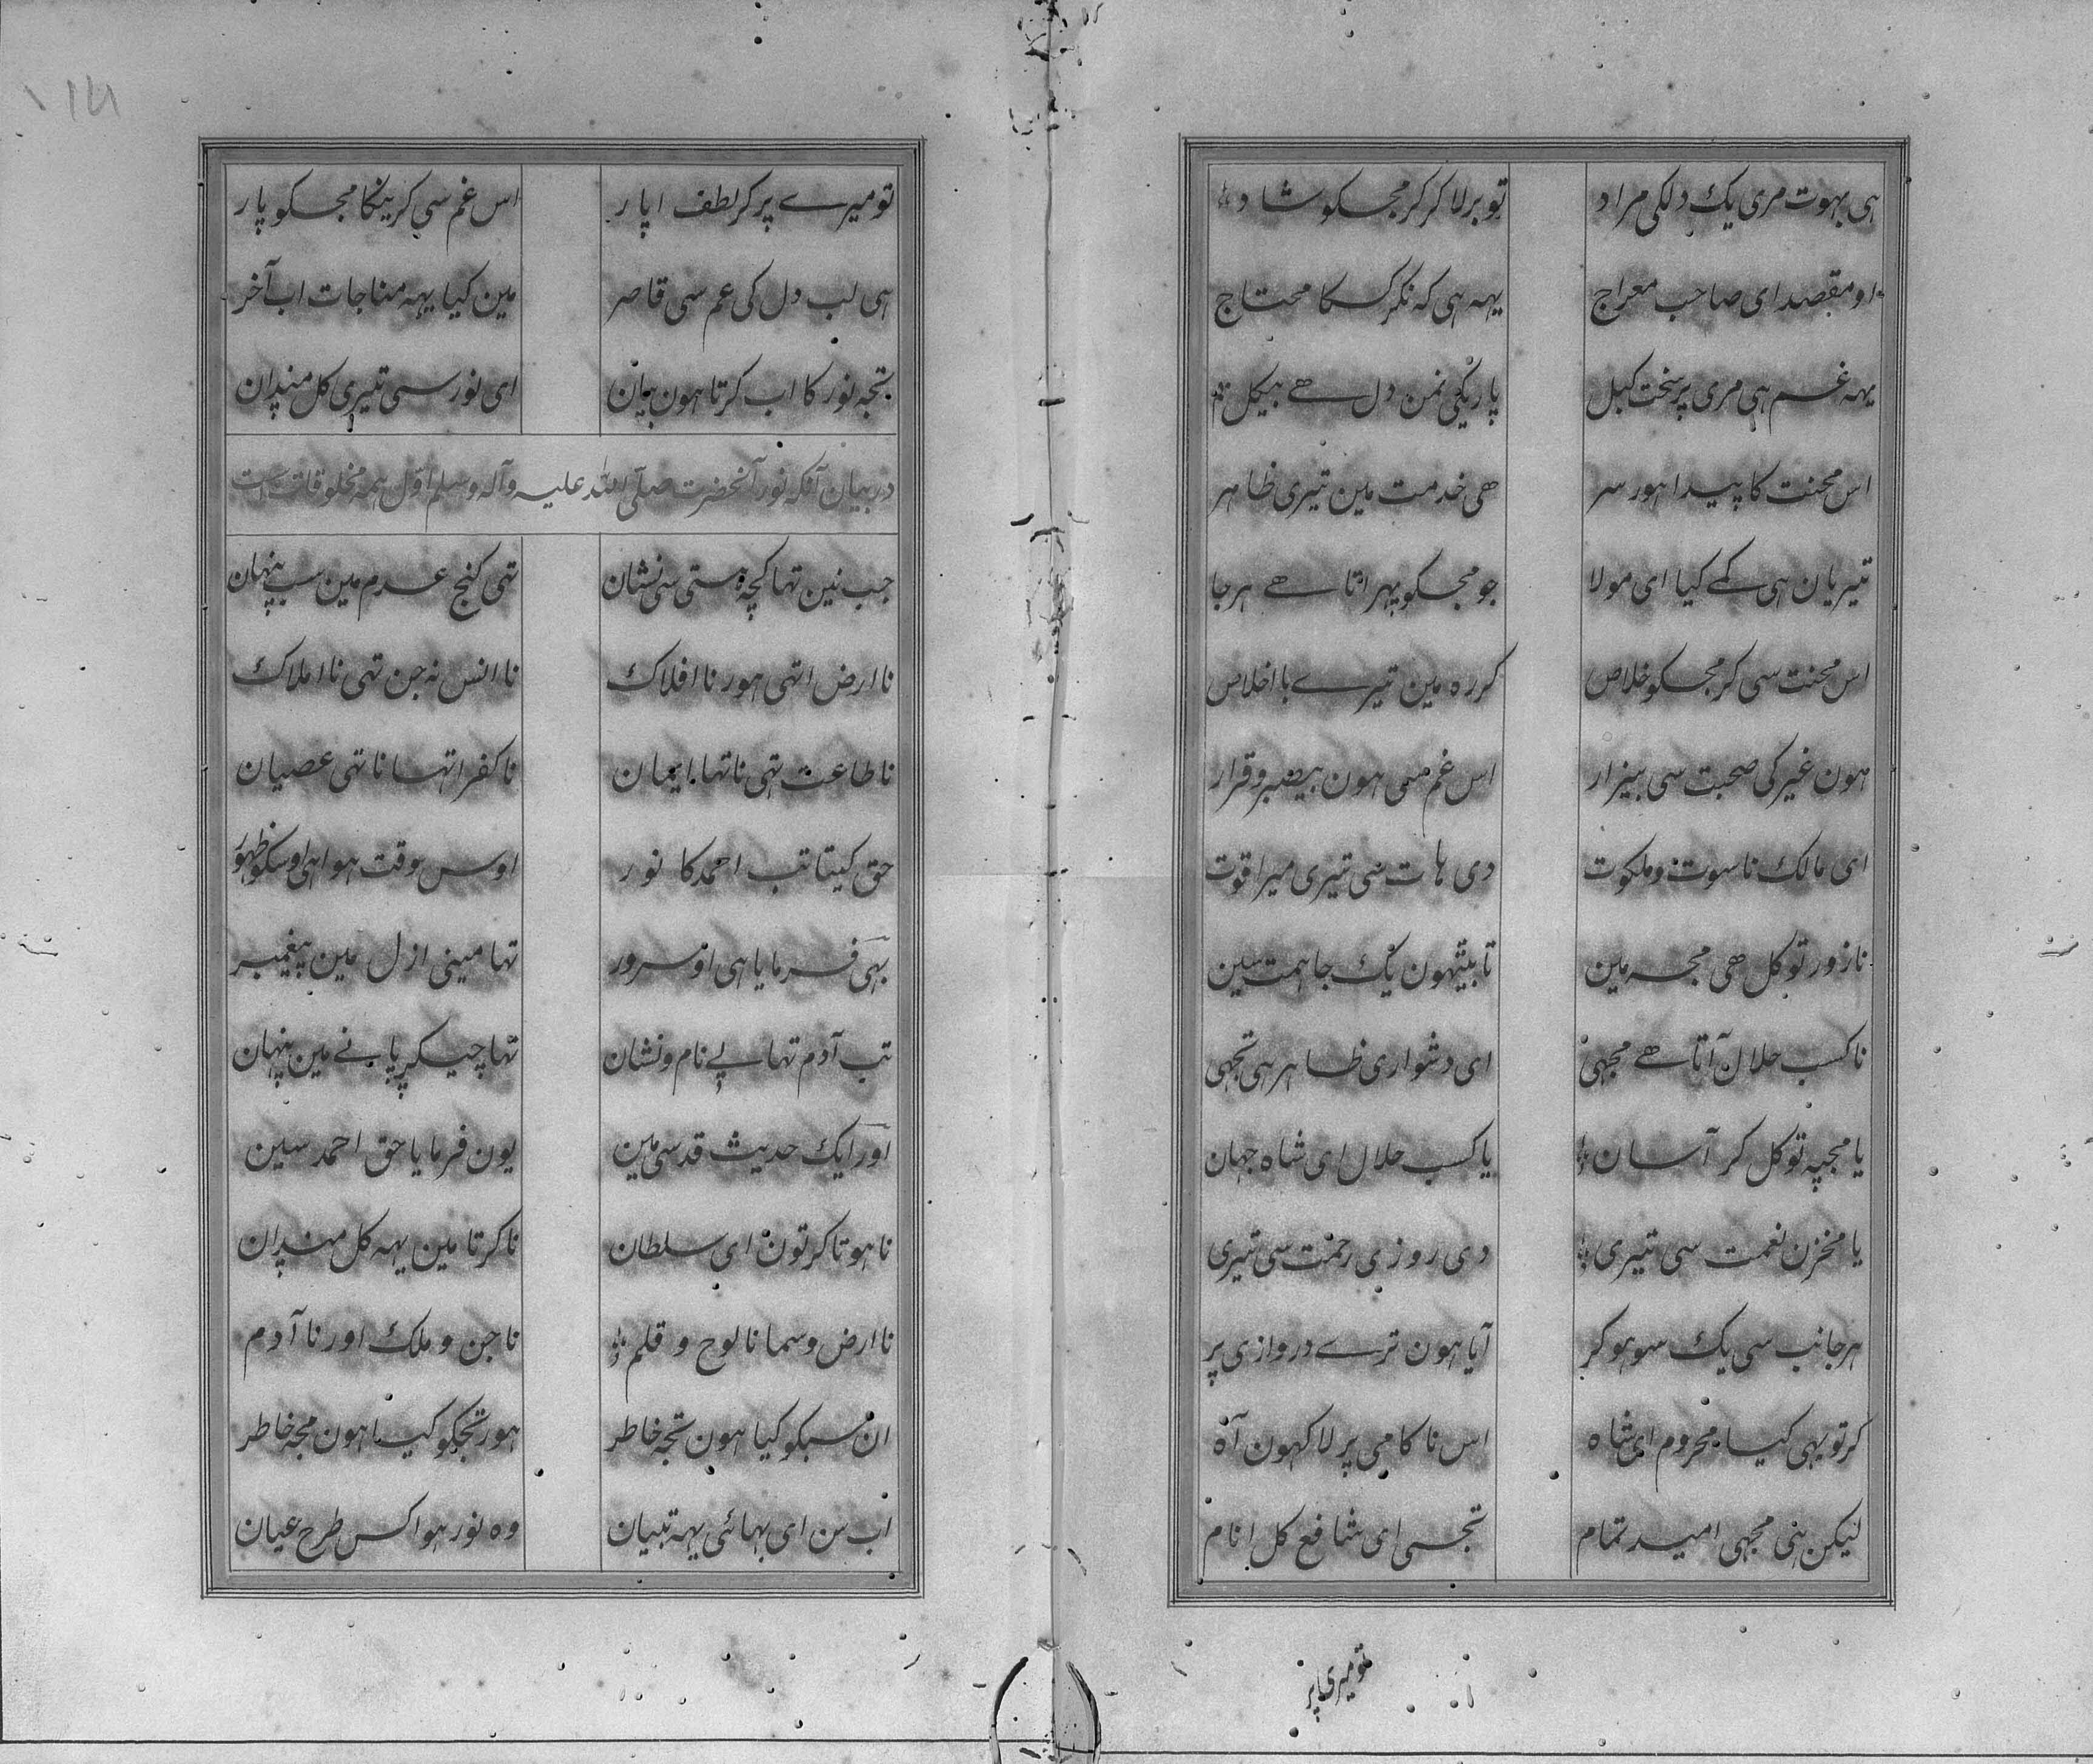 ہی بہوت مری یک دلکی مراد	تو برلا کر کر مجسکو شاد
او مقصد ای صاحب معراج	یہہ ہی کہ نکر کسکا محتاج
یہہ غم ہی مری پر سخت کبل	پاریکی نمن دل ھے بیکل
اس محنت کا پیدا ہور سر	ھی خدمت مین تیری ظاہر
تیریان ہی کے کیا ای مولا	جو مجسکو پہراتا ھے ہر جا
اس محنت سی کر مجسکو خلاص	کر رہ مین تیرے با اخلاص
ہون غیر کی صحبت سی بیزار	اس غم سی ہون بیصبر و قرار
ای مالک ناسوت و ملکوت	دی ہات سی تیری میرا قوت
نا زور توکل ھی مجہ مین	تا بیٹہون یک جا ہمت سین
نا کسب حلال آتا ھے مجہی	ای دشواری ظاہر ہی تجہی
یا مجپہ توکل کر آسان	یا کسب حلال ای شاہ جہان
یا مخزن نعمت سی تیری	دی روزی رحمت سی تیری
ہر جانب سی یک سو ہو کر	آیا ہون ترے دروازی پر
کر تو بہی کیا محروم ای شاہ	اس ناکامی پر لاکہون آہ
لیکن ہنی مجہی امید تمام	تجسی ای شافع کل انام
تو میری پر
تو میرے پر کر لطف اپار	اس غم سی کرینگا مجسکو پار
ہی لب دل کی غم سی قاصر	مین کیا یہہ مناجات اب آخر
تجہ نور کا اب کرتا ہون بیان	ای نور سی تیری کل مندان
در بیان آنکہ نور آنحضرت صلی اللہ علیہ وآلہ وسلم اول ہمہ مخلوقات است
جب نین تہا کچہ ہستی سی نشان	تہی کنج عدم مین سب پنہان
نا ارض اتہی ہور نا افلاک	نا انس نہ جن تہی نا املاک
نا طاعت تہی نا تہا ایمان	نا کفر اتہا نا تہی عصیان
حق کیتا تب احمد کا نور	اوس وقت ہوا ہی اوسکو ظہور
بہی فرمایا ہی او سرور	تہا مینی ازل مین پیغمبر
تب آدم تہا بے نام و نشان	تہا چیکر پانے مین پنہان
اور ایک حدیث قدسی مین	یون فرمایا حق احمد سین
نا ہوتا کر تون ای سلطان	نا کرتا مین یہہ کل مندان
نا ارض و سما نا لوح و قلم	نا جن و ملک اور نا آدم
ان سبکو کیا ہون تجہ خاطر	ہور تجکو کیا ہون مجہ خاطر
اب سن ای بہائی یہہ تبیان	وہ نور ہوا کس طرح عیان